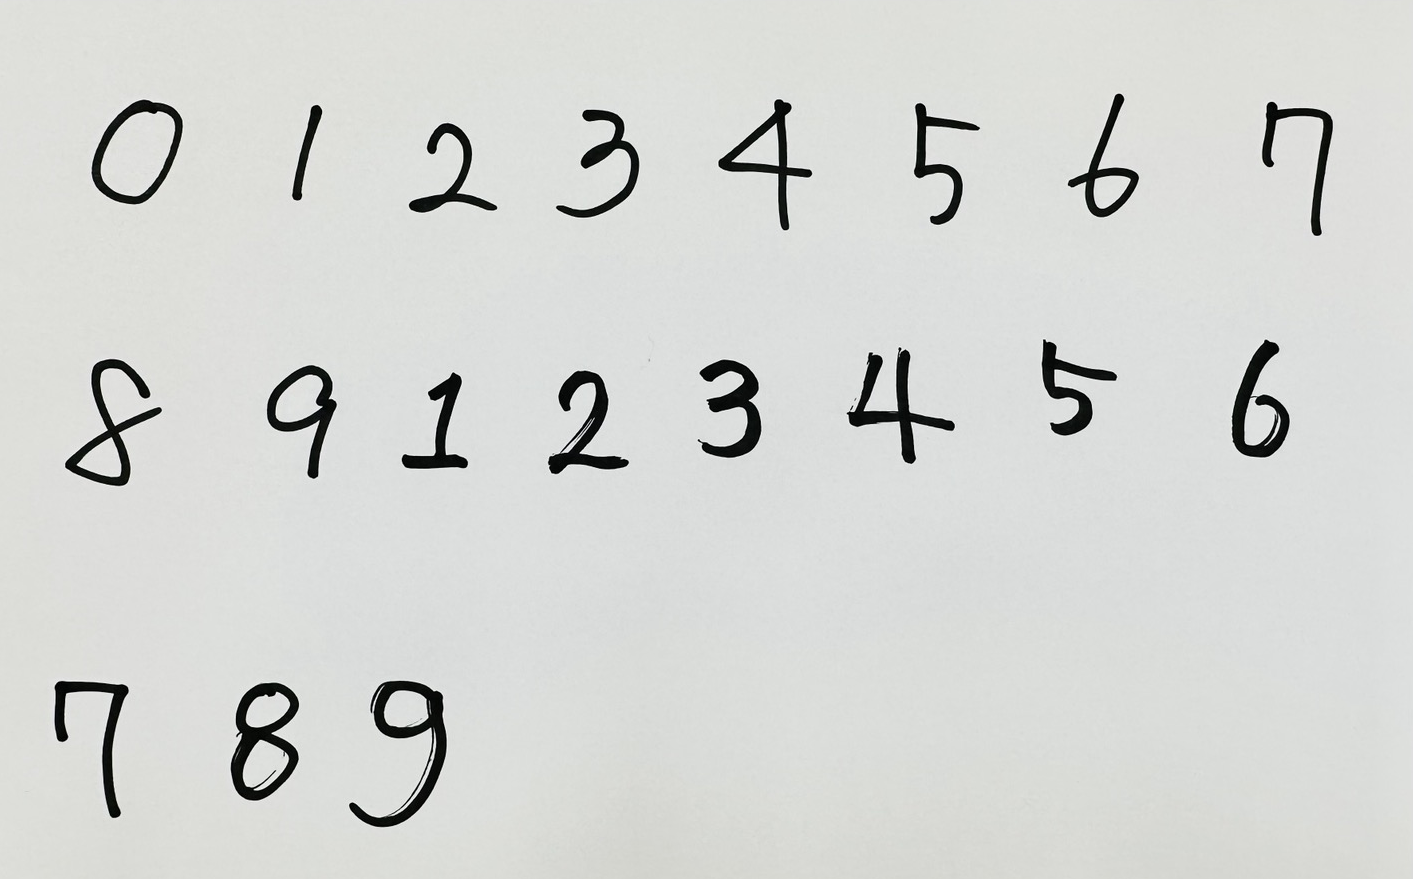 0 1 2 3 4 5 6 7
8 9 1 2 3 4 5 6
7 8 9